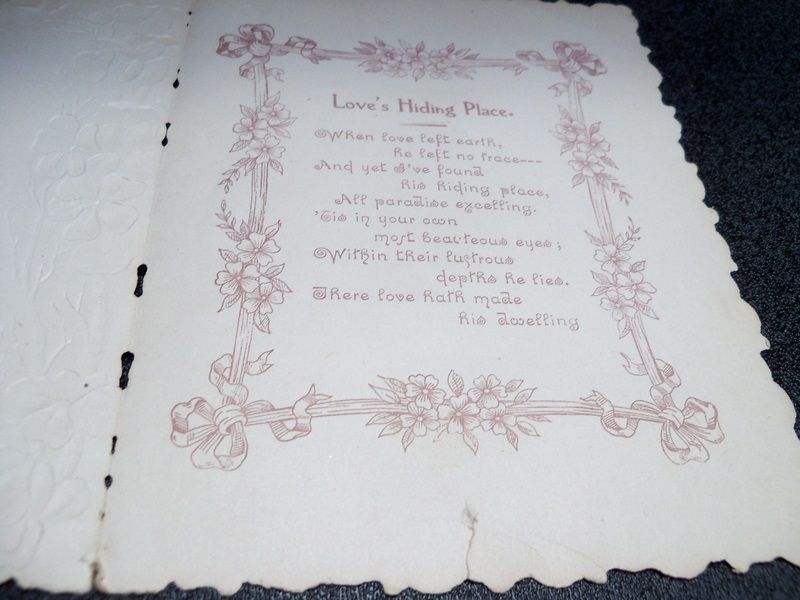 Love's Hiding Place.
When love left earth,
he left no trace---
And yet I've found
his hiding place,
All paradise excelling.
'Tis in your own
most beauteous eyes;
Within their lustrous
depths he lies.
There love hath made
his dwelling